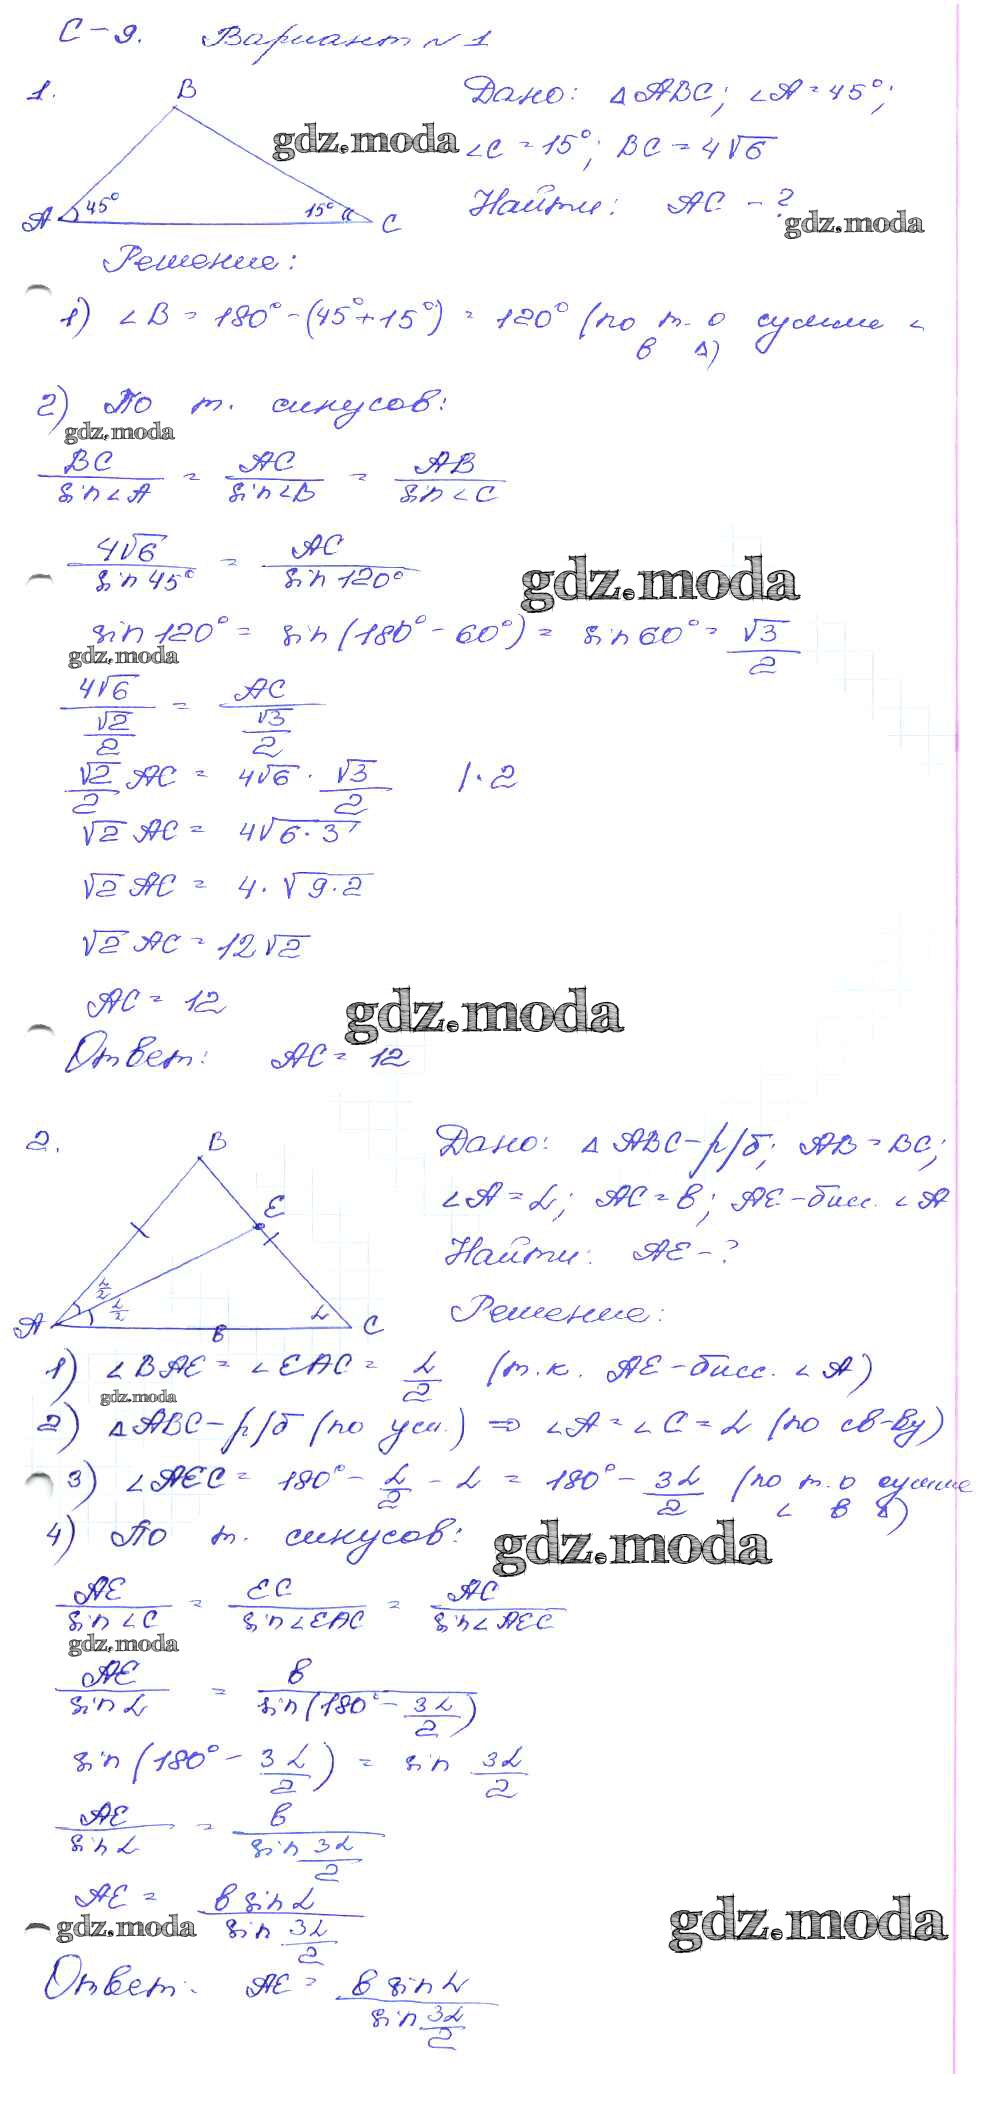 С-9. Вариант №1
1.
B
A
45°
15°
C
Дано: △ABC; ∠A=45°;
∠C=15°; BC=4√6
Найти: AC-?
gdz.moda
gdz.moda
Решение:
1) ∠B = 180°-(45°+15°) = 120° (по т. о сумме ∠
в △)
2) По т. синусов:
gdz.moda
BC/sin∠A = AC/sin∠B = AB/sin∠C
4√6/sin45° = AC/sin120°
gdz.moda
sin120° = sin(180°-60°) = sin60° = √3/2
gdz.moda
4√6/(√2/2) = AC/(√3/2)
√2/2 AC = 4√6 · √3/2 |·2
√2 AC = 4√6·3
√2 AC = 4·√9·2
√2 AC = 12√2
AC = 12
gdz.moda
Ответ: AC = 12
2.
B
E
A
α/2
α/2
α
C
в
Дано: △ABC-р/б; AB=BC;
∠A=α; AC=в; AE-бисс. ∠A
Найти: AE-?
Решение:
1) ∠BAE = ∠EAC = α/2 (т.к. AE-бисс. ∠A)
gdz.moda
2) △ABC-р/б (по усл.) ⇒ ∠A=∠C=α (по св-ву)
3) ∠AEC = 180° - α/2 - α = 180° - 3α/2 (по т. о сумме
∠ в △)
4) По т. синусов:
gdz.moda
AE/sin∠C = EC/sin∠EAC = AC/sin∠AEC
gdz.moda
AE/sinα = в/sin(180°-3α/2)
sin(180°-3α/2) = sin 3α/2
AE/sinα = в/sin 3α/2
AE = в sinα/sin 3α/2
gdz.moda
gdz.moda
Ответ: AE = в sinα/sin 3α/2